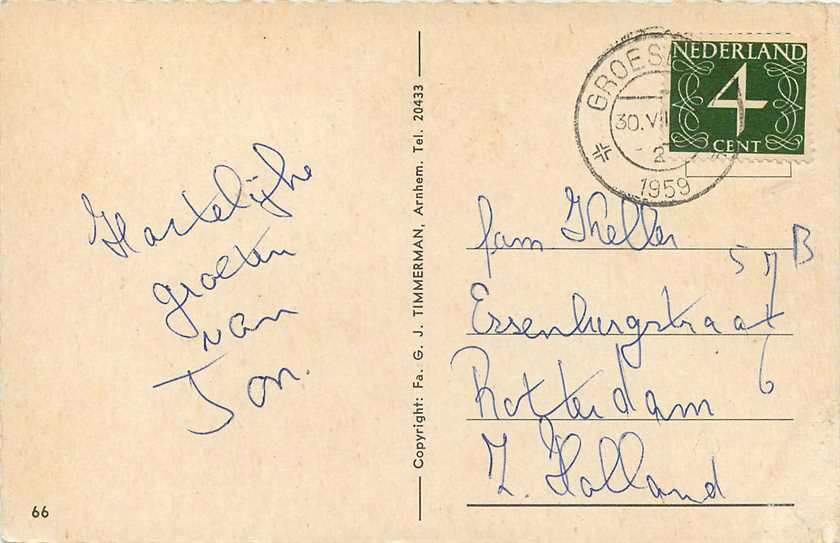 Hartelijke
groeten
van
Ton.
66
Copyright: Fa. G. J. TIMMERMAN, Arnhem. Tel. 20433
30.VII
2
1959
NEDERLAND
4
CENT
fam Kheller
57 B
Essenburgstraat
6
Rotterdam
Z. Holland